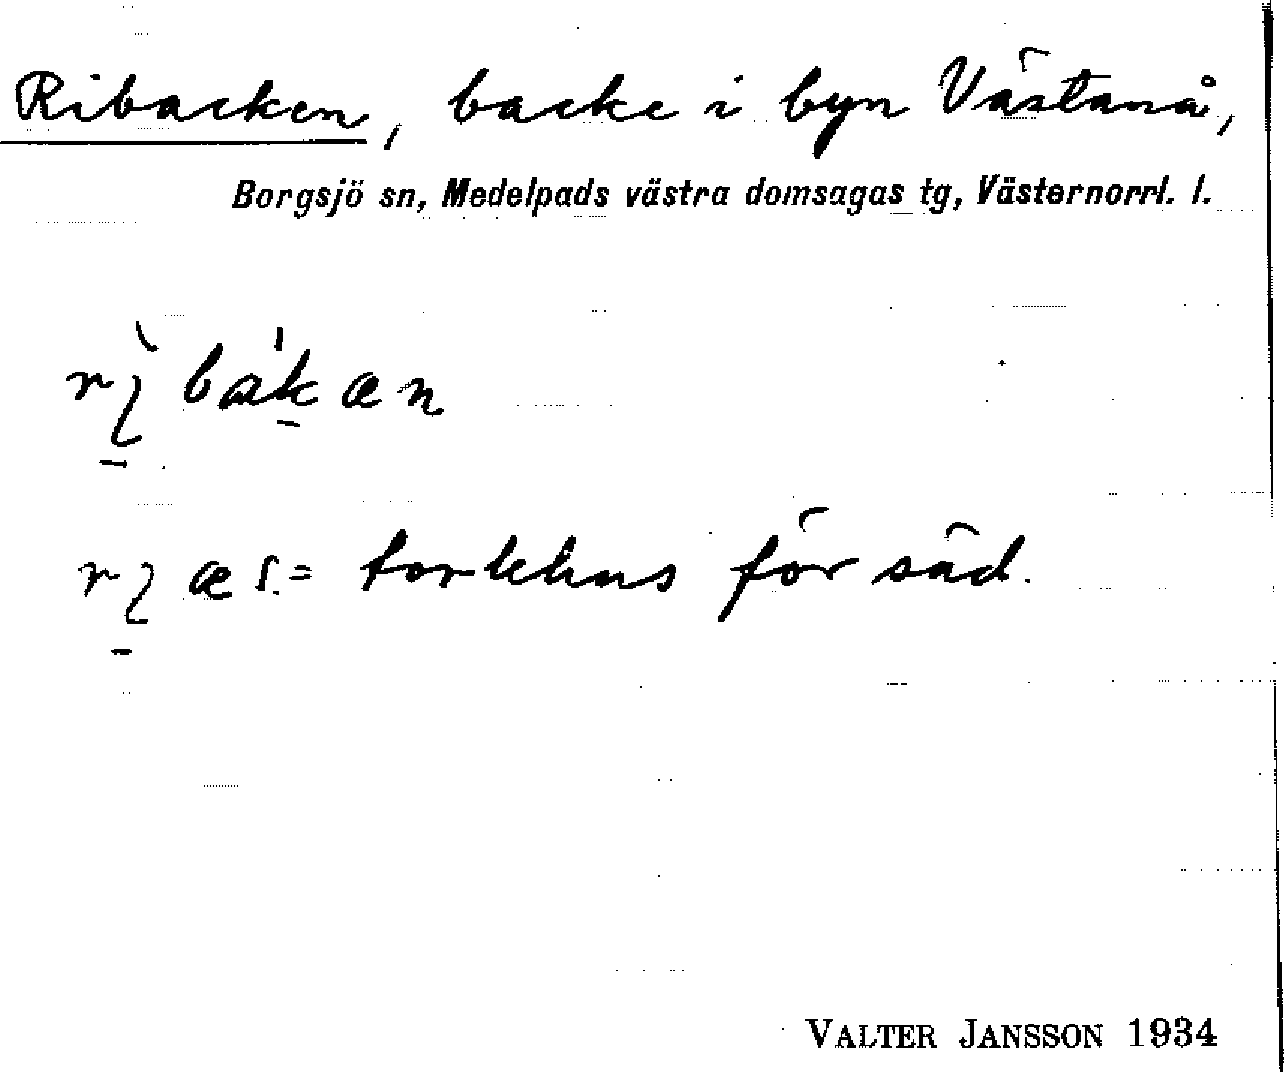 Ribacken, backe i byn Västanå,
Borgsjö sn, Medelpads västra domsagas tg, Västernorrl. l.
torkhus för säd.
VALTER JANSSON 1934